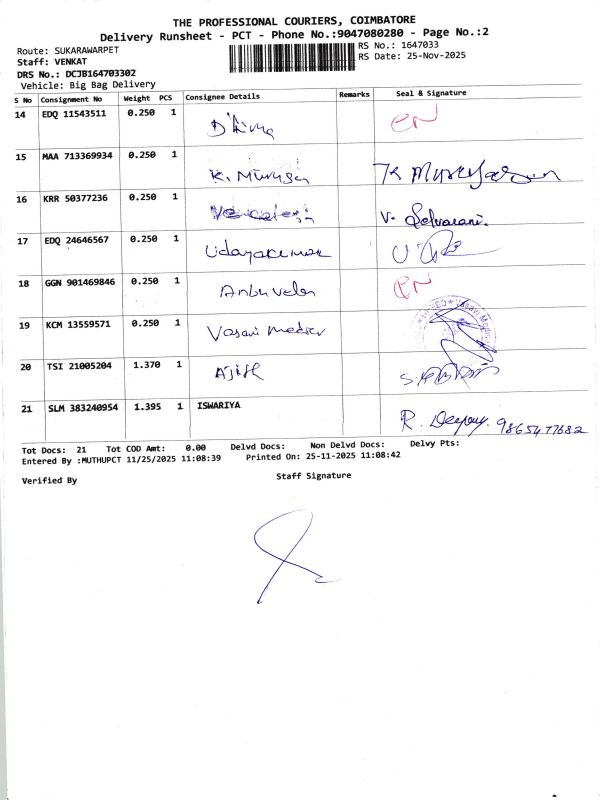 THE PROFESSIONAL COURIERS, COIMBATORE
Delivery Runsheet - PCT - Phone No.:9047080280 - Page No.:2
Route: SUKARAWARPET
RS No.: 1647033
Staff: VENKAT
RS Date: 25-Nov-2025
DRS No.: DCJB164703302
Vehicle: Big Bag Delivery
S No Consignment No Weight PCS Consignee Details Remarks Seal & Signature
14 EDQ 11543511 0.250 1
15 MAA 713369934 0.250 1 K. Murugan K Murugesan
16 KRR 50377236 0.250 1 V. Selvarani.
17 EDQ 24646567 0.250 1 Udayakumar
18 GGN 901469846 0.250 1 Anbu velan
19 KCM 13559571 0.250 1 Vasavi medicer
20 TSI 21005204 1.370 1 Ajith
21 SLM 383240954 1.395 1 ISWARIYA R. Deepay. 9865477682
Tot Docs: 21 Tot COD Amt: 0.00 Delvd Docs: Non Delvd Docs: Delvy Pts:
Entered By :MUTHUPCT 11/25/2025 11:08:39 Printed On: 25-11-2025 11:08:42
Verified By Staff Signature